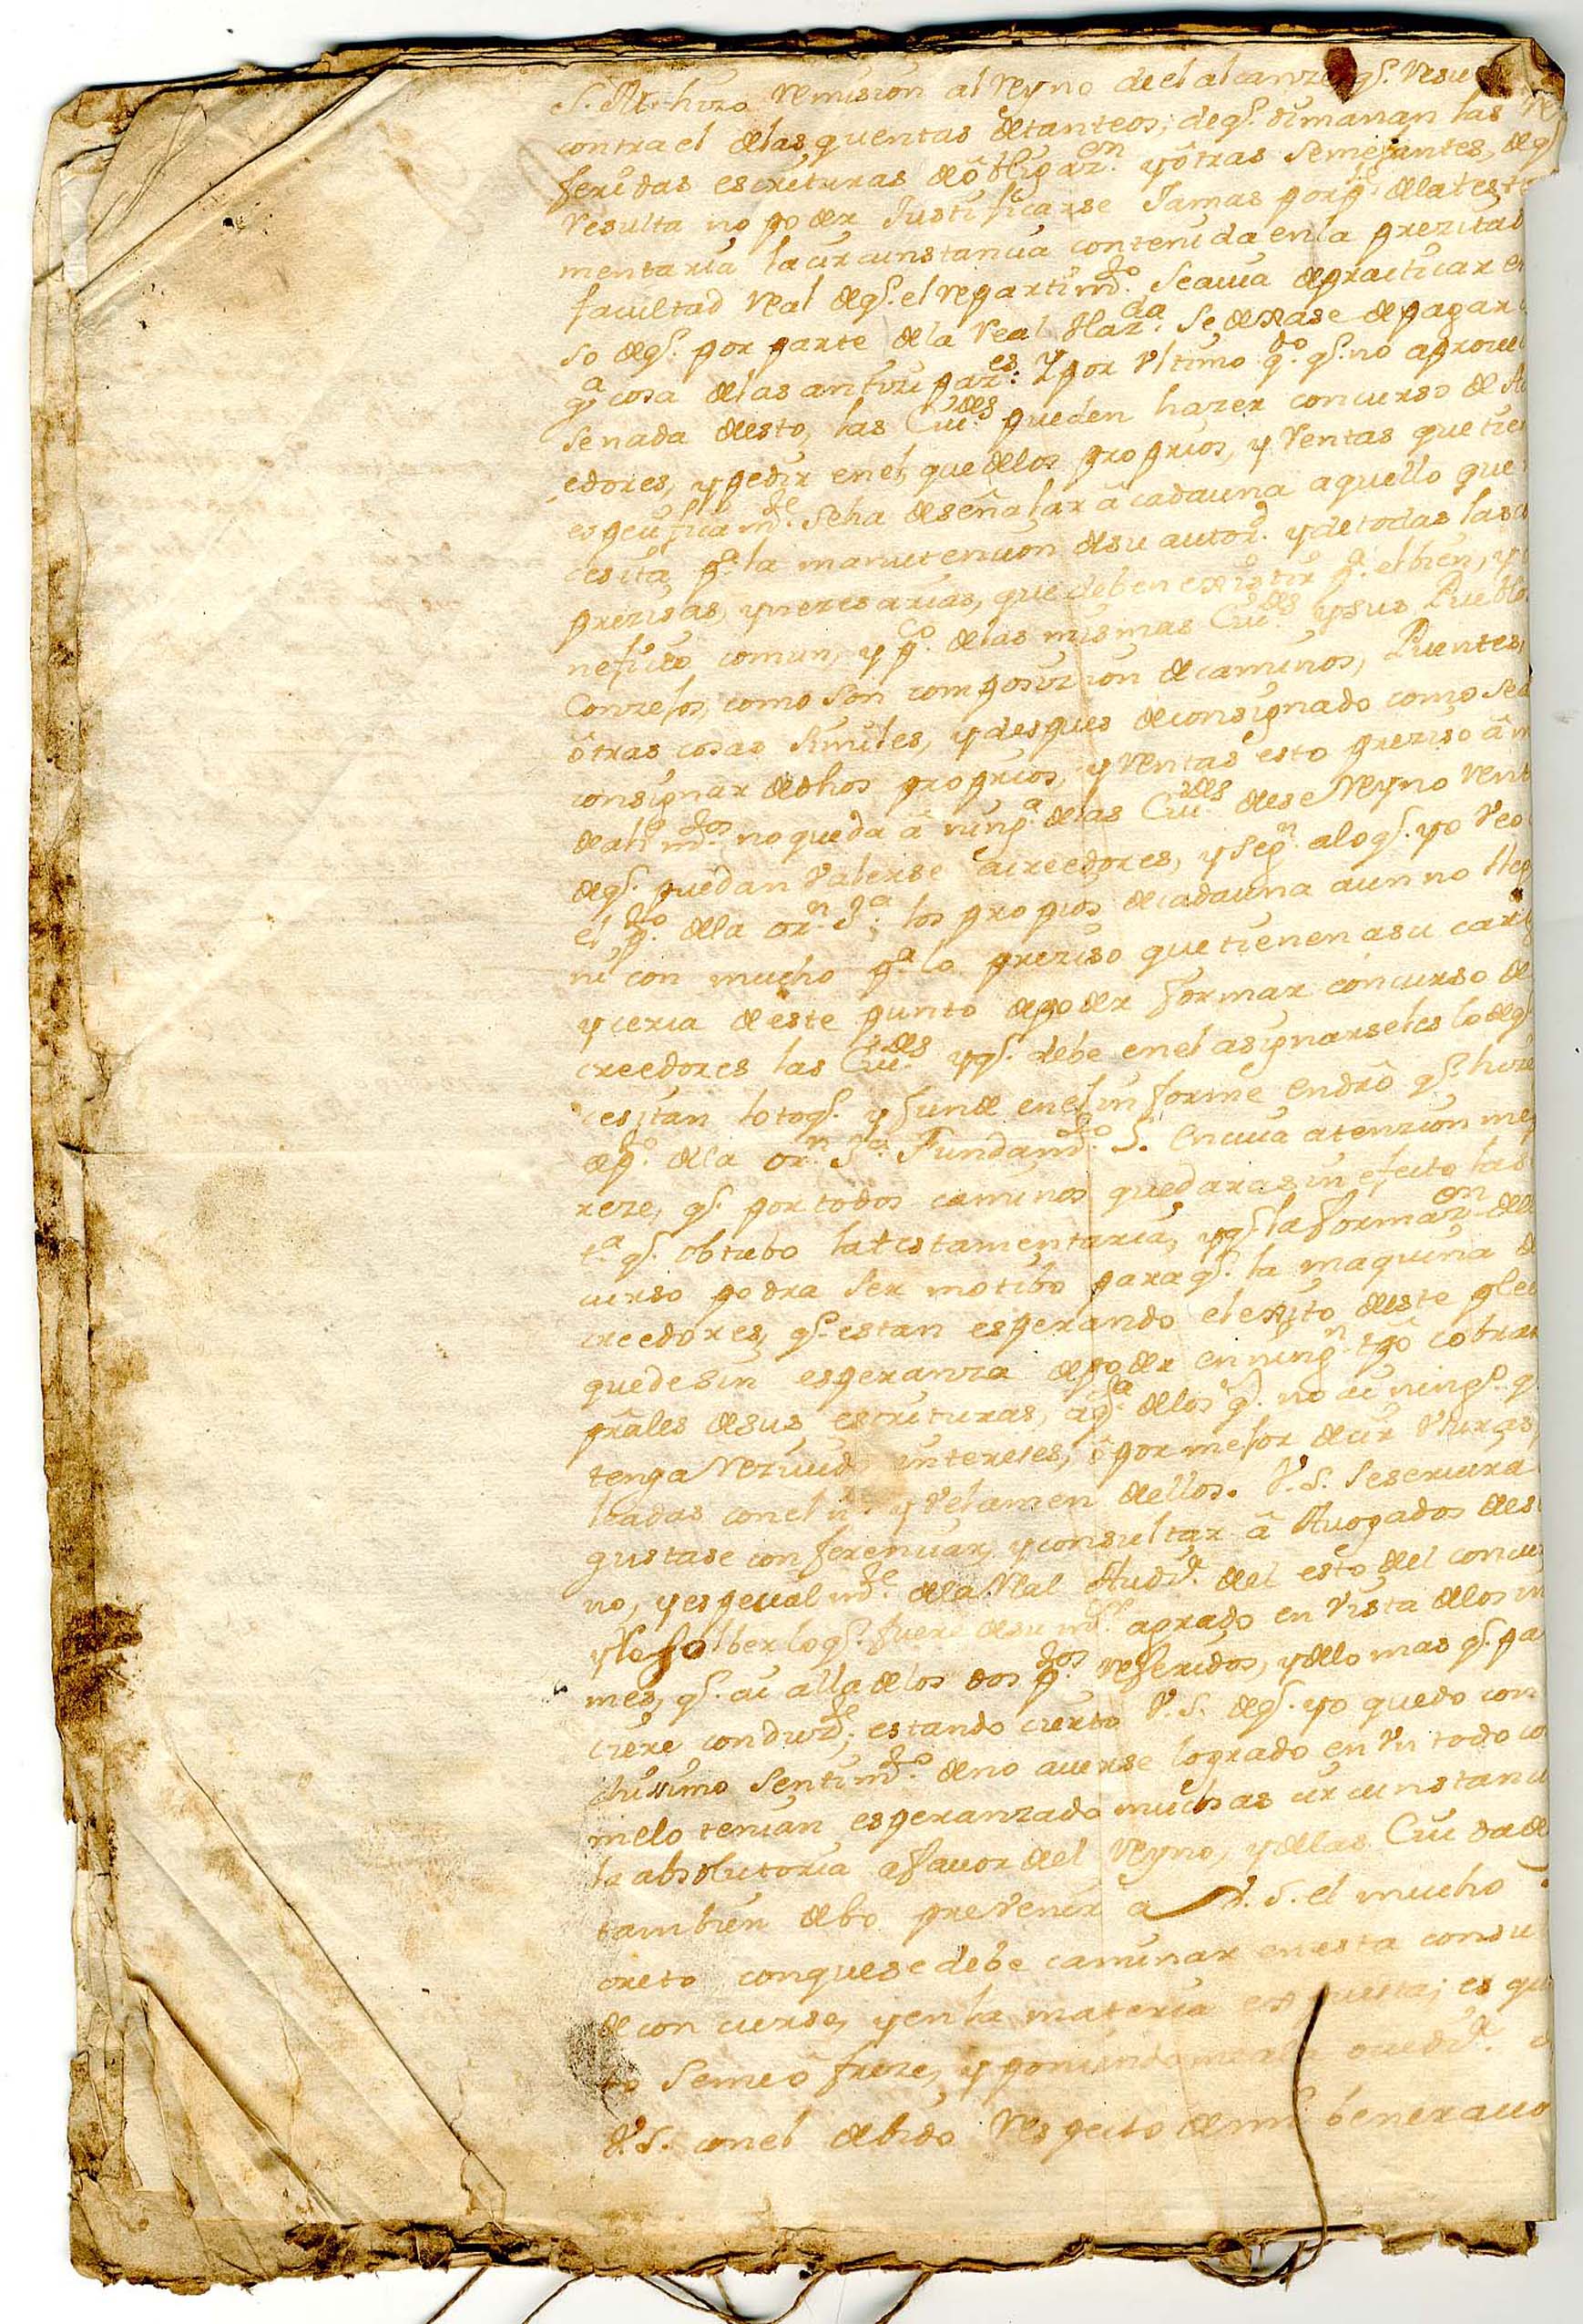 S. M. hizo remision al Reyno de el alcanze, qe. resu
contra el de las quentas de tanteos, de qe. dimanan las re
feridas escrituras de obligazon. y otras semejantes, de qe
resulta no poder Justificarse Jamas por pte. de la testa
mentaria la circunstancia contenida en la prezitad
facultad real de qe. el repartimto. se auia de practicar en
so de qe. por parte de la real Hazda. se dexase de pagar
qa. cosa de las antizipazes: Y por Vltimo pto. qe. no aproue
se nada de esto, las Ciudes. pueden hazer concurso de A
edores, y pedir en el, que de los proprios, y rentas que tie
espezificamte. se ha de señalar â cada una aquello que
cesita pa. la manutenzion de su autord. y de todas las co
prezisas, y nezesarias, que deben existir pa. el bien, y
neficio comun, y pco. de las mismas Ciudes. y sus Pueblos
Conzejos, como son composizion de caminos, Puentes,
ôtras cosas similes, y despues de consignado como se d
consignar de dhos proprios, y rentas esto preziso â
de alimtos. no queda â ninga. de las Ciudes. de ese Reyno rent
de qe. puedan valerse acreedores, y segn. a lo qe. yo veo
el pto. de la orn. Ja; los propios de cada una aun no lleg
ni con mucho pa. lo preziso que tienen a su carg
y cerca de este punto de poder formar concurso de
creedores las Ciudes. y qe. debe en el asignarseles lo de qe
cesitan lo toqe. y funde en el informe en dro qe. hize
de pto. de la orn. Ja. Fundamto. 5. En cuia atenzion me p
reze, qe. por todos caminos quedara sin efecto las
ta. qe. obtubo la testamentaria, y qe. la formazon de
curso podra ser motibo para qe. la maquina de
creedores, qe. estan esperando el exito de este plei
quede sin esperanza de poder en ningn. tpô cobrar
prâles de sus escrituras, a qta. de los qe. no ai ningo. q
tenga rezivido intereses, ô por mejor dezir Vsuras,
leadas con el y velamen de ellos. V. S. se seruira
gustase conferenziar, y consultar â Auogados de es
no, y espezialmte. de la Rl Audia. del esto del concu
y resolber lo qe. fuere de su mr. agrado en vista de los in
mes, qe. ai alla de los dos ptos. referidos, y de lo mas qe. pa
ciere conduzte; estando cierto V. S. de qe. yo quedo con
chisimo sentimto. de no auerse logrado en vn todo co
me lo tenian esperanzado muchas circunstanci
la absolutoria a fauor del Reyno, y de las Ciudade
tambien debo prevenir a V. S. el mucho
creto conque se debe caminar en esta consu
de concurso, y en la materia expuesta; es qu
to se me ôfreze, y poniendome a la ouedia.
V. S. con el debido respecto de mi beneracio